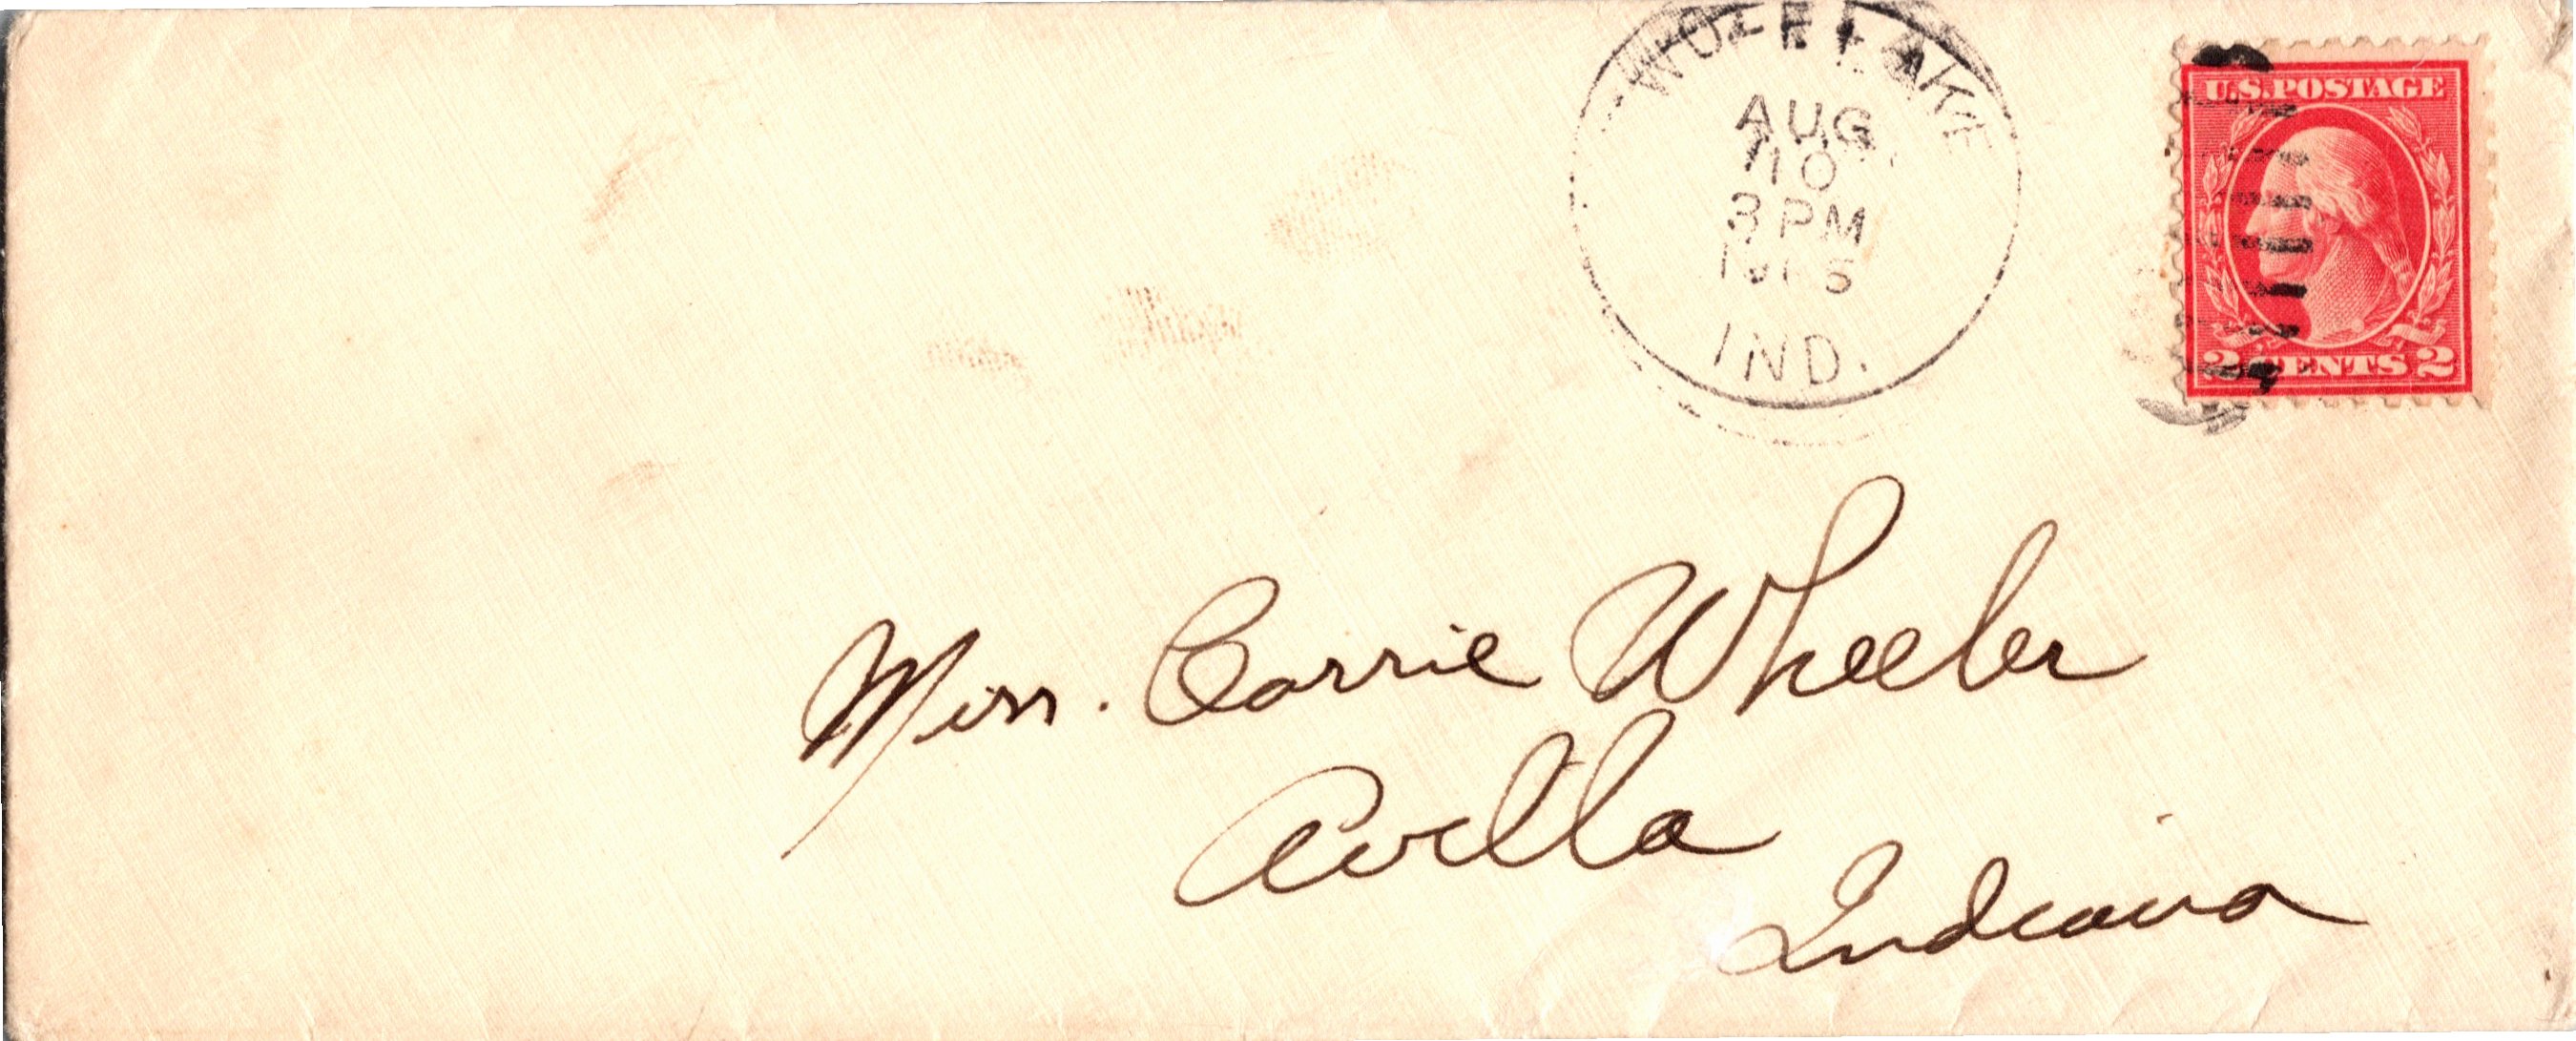 WOLF LAKE
AUG
10
3 PM
IND.
U.S. POSTAGE
2 CENTS 2
Miss. Carrie Wheeler
Avilla
Indiana